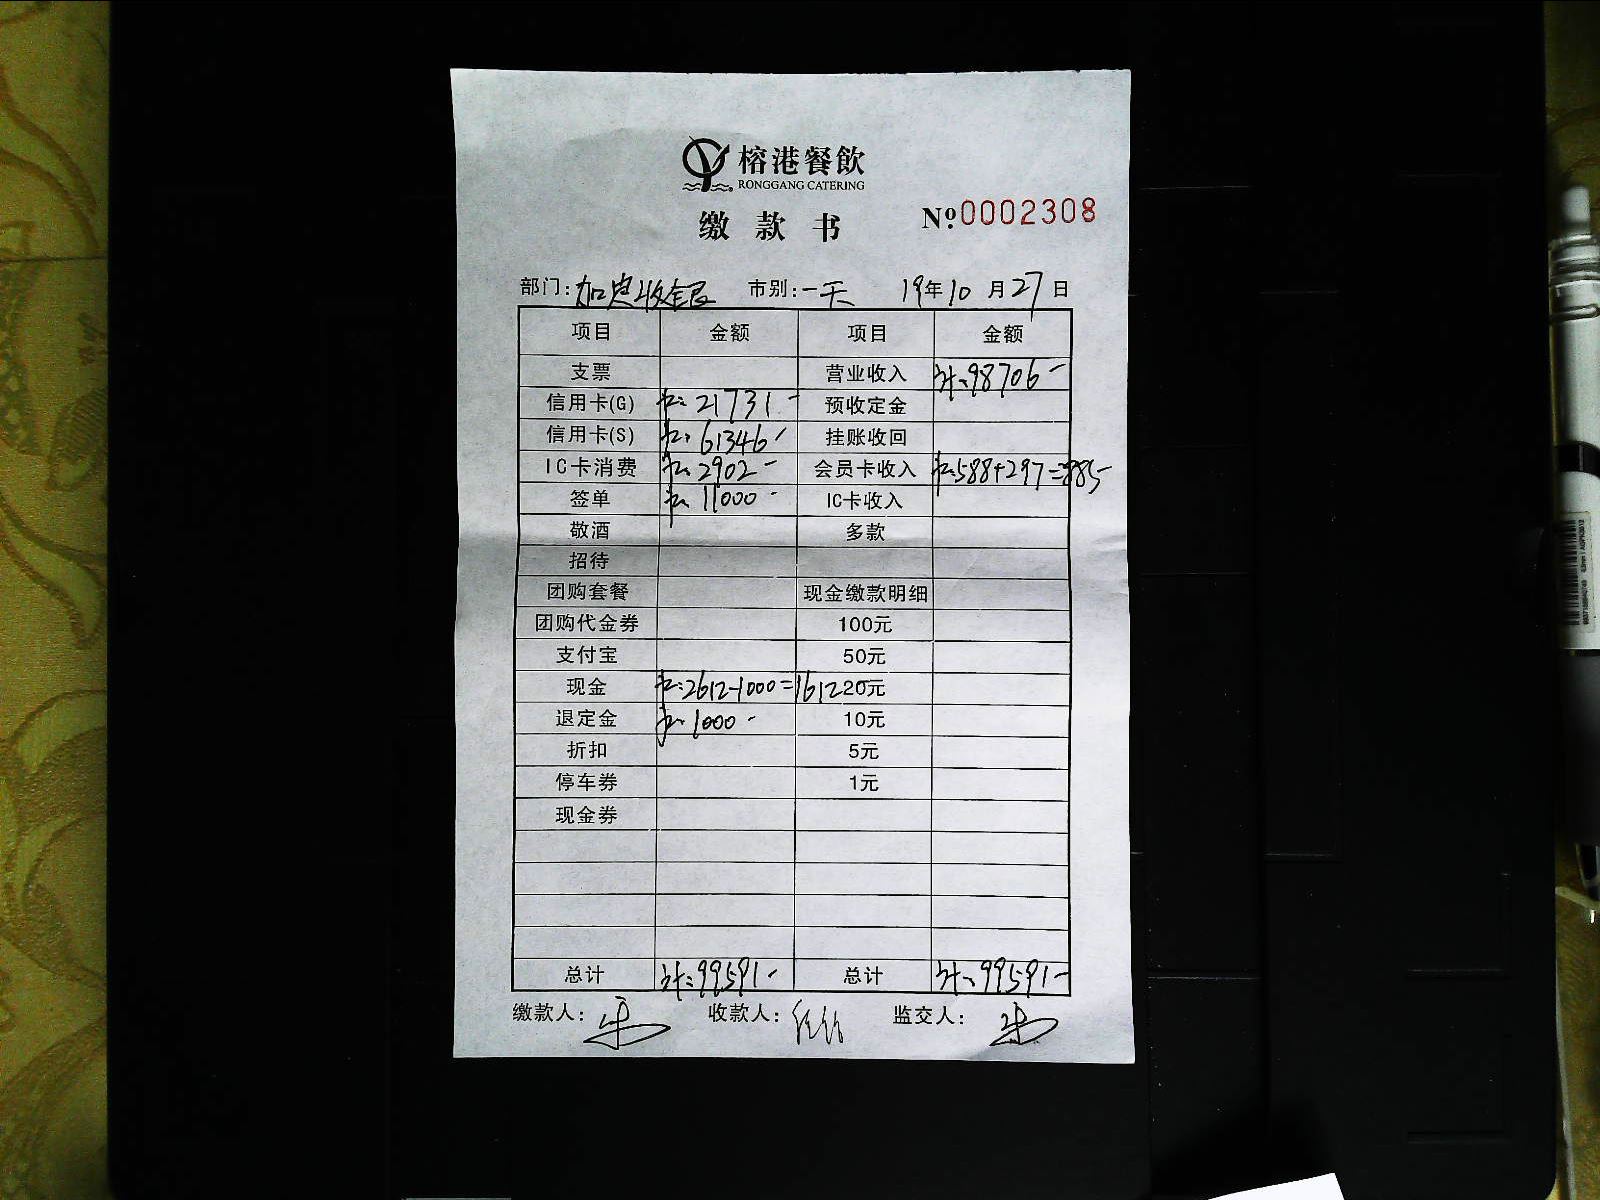 榕港餐飲
RONGGANG CATERING
缴款书
No.0002308
部门:加定收银 市别:一天 19年10月27日
项目 金额 项目 金额
支票 营业收入 计:98706-
信用卡(G) 卡:21731- 预收定金
信用卡(S) 卡:61346- 挂账收回
IC卡消费 卡:2902- 会员卡收入 卡:588+297=885-
签单 卡:11000- IC卡收入
敬酒 多款
招待
团购套餐 现金缴款明细
团购代金券 100元
支付宝 50元
现金 卡:2612-1000=1612 20元
退定金 卡:1000- 10元
折扣 5元
停车券 1元
现金券
总计 计:99591- 总计 计:99591-
缴款人: 收款人: 监交人: